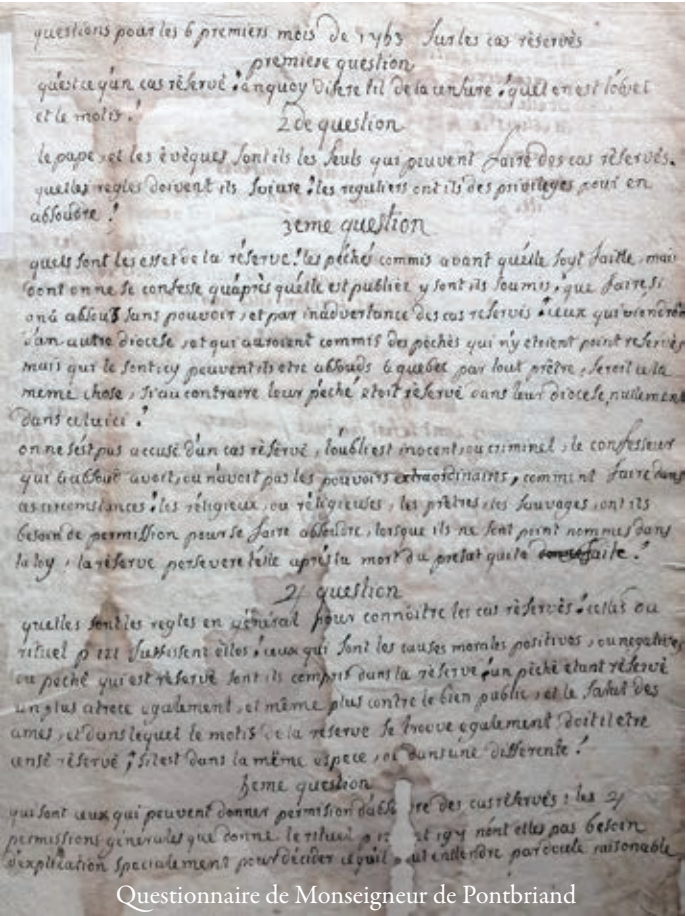 questions pour les 6 premiers mois de 1753 sur les cas réservés
premiere question
qu'est ce qu'un cas réservé ? en quoy difere t il de la censure ? quel en est l'objet
et le motif ?
2de question
le pape, et les évêques sont ils les seuls qui peuvent faire des cas réservés.
quelles regles doivent ils suivre ? les reguliers ont ils des privileges pour en
absoudre ?
3eme question
quels sont les effet de la réserve ? les péchés commis avant quelle soyt faitte, mais
dont on ne se confesse qu'après quelle est publiée y sont ils soumis, que faire si
on a absout sans pouvoir, et par inadvertance des cas réservés ? ceux qui viendron
d'un autre diocese, et qui auroient commis des pechés qui n'y étoient point reservés
mais qui le sont icy peuvent ils etre absouds a quebec par tout prêtre, seroit ce la
meme chose, si au contraire leur péché etoit réservé dans leur diocese, nullement
dans celui ici ?
on ne s'est pas accusé d'un cas réservé, l'oubli est inocent, ou criminel, le confesseur
qui a absout avoit, ou n'avoit pas les pouvoirs extraordinaires, comment faire dans
ces circonstances ? les réligieux, ou réligieuses, les prêtres, les sauvages, ont ils
besoin de permission pour se faire absoudre, lorsque ils ne sont point nommés dans
la loy, la réserve persevere t elle aprés la mort du prelat qui l'a faite ?
4 question
quelles sont les regles en général pour connoitre les cas réservés ? celles du
rituel p 122 suffisent elles ? ceux qui sont les causes morales positives, ou negatives
du peché qui est réservé sont ils compris dans la réserve ? un péché etant réservé
un plus atroce egalement, et même plus contre le bien public, et le salut des
ames, et dans lequel le motif de la réserve se trouve egalement doit il etre
censé réservé ; s'il est dans la même espece, ou dans une differente ?
5eme question
qui sont ceux qui peuvent donner permission d'abso re des cas réservés ? les 4
permissions générales que donne le rituel n'ont elles pas besoin
d'explication specialement pour décider ce qu'il entendre par occasion raisonable
Questionnaire de Monseigneur de Pontbriand